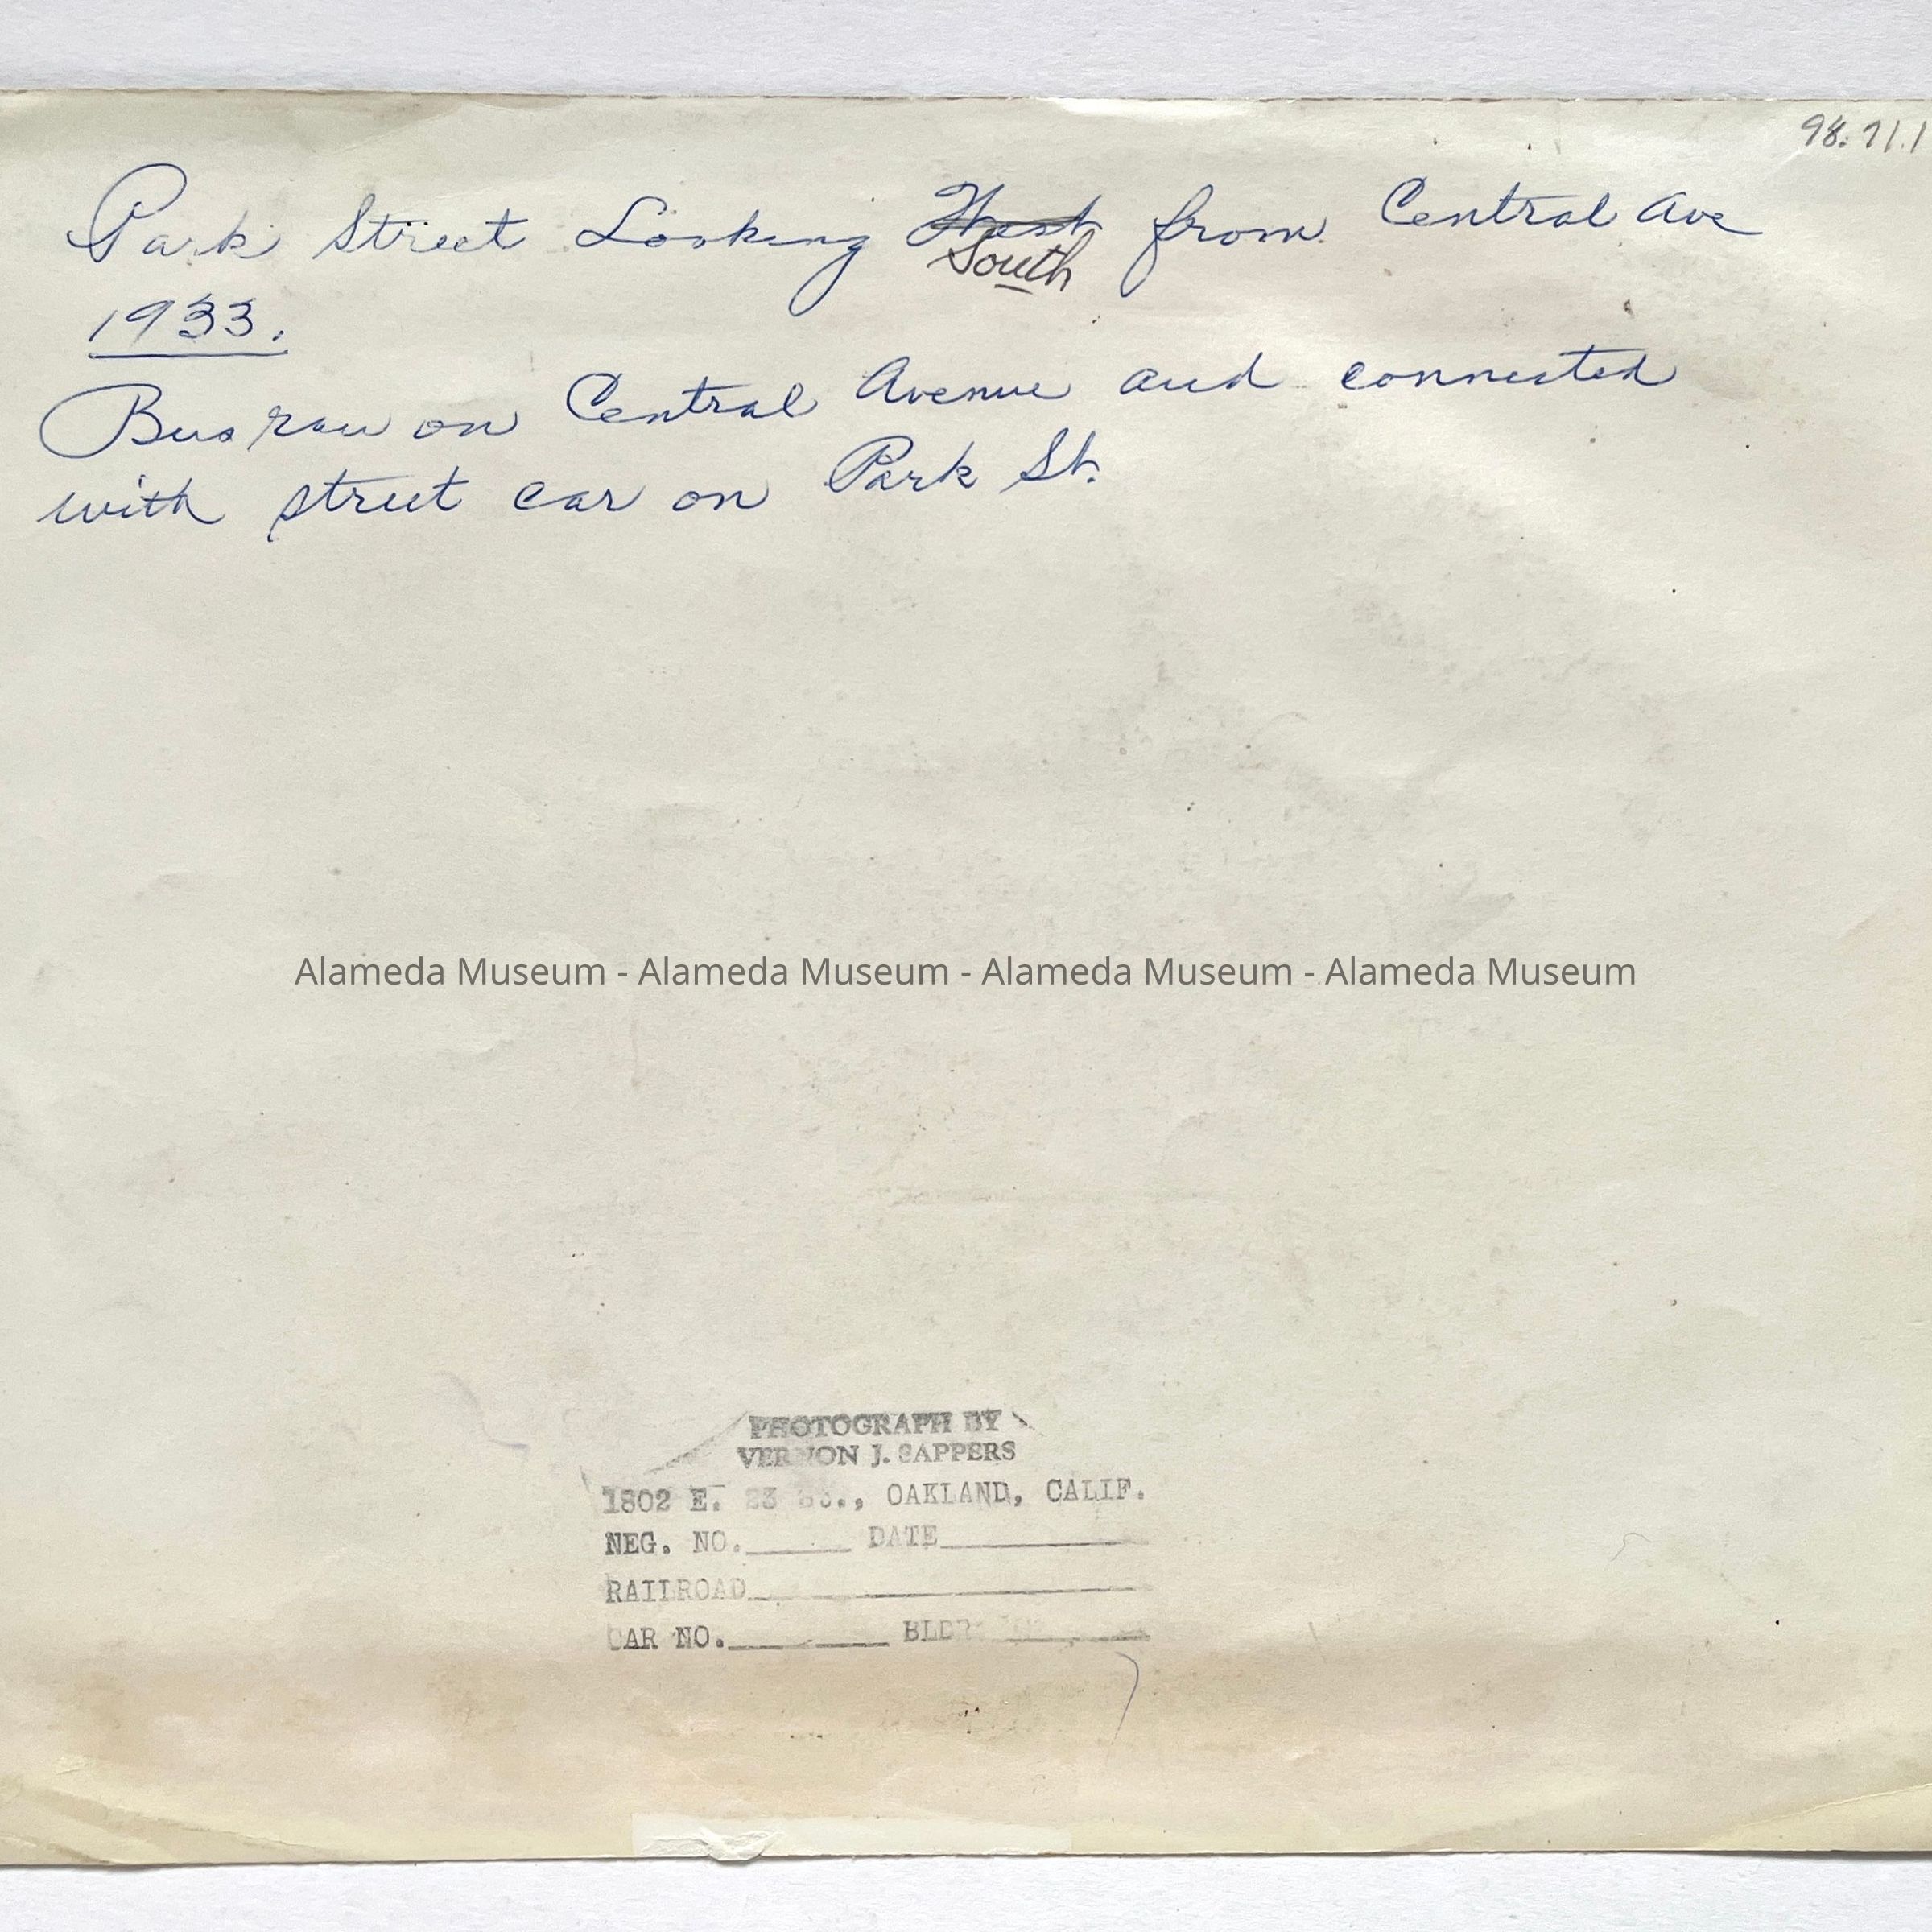 98.71.1
Park Street Looking West from Central Ave
South
1933.
Bus ran on Central Avenue and connected
with street car on Park St.
Alameda Museum - Alameda Museum - Alameda Museum - Alameda Museum
PHOTOGRAPH BY
VERNON J. SAPPERS
1802 E. 23 St., OAKLAND, CALIF.
NEG. NO. DATE
RAILROAD
CAR NO. BLDR